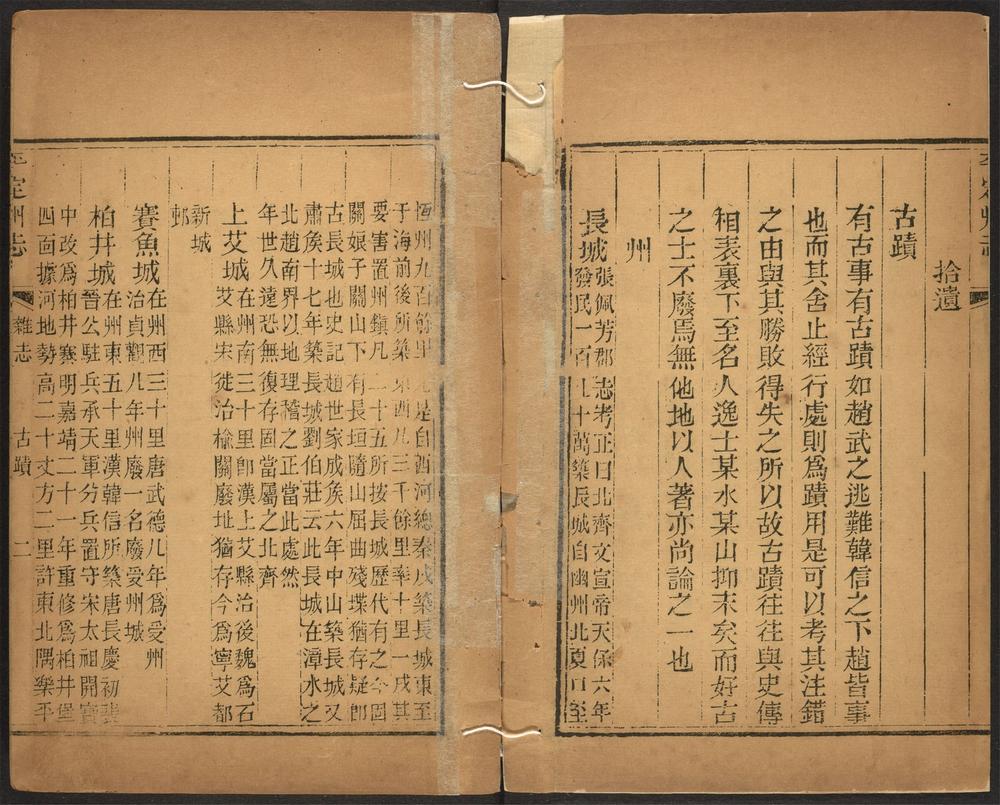 拾遺
古蹟
有古事有古蹟如趙武之逃難韓信之下趙皆事
也而其舍止經行處則爲蹟用是可以考其注錯
之由與其勝敗得失之所以故古蹟往往與史傳
相表裏下至名人逸士某水某山抑末矣而好古
之士不廢焉無他地以人著亦尚論之一也
州
長城張佩芳郡志考正曰北齊文宣帝天保六年
發民一百八十萬築長城自幽州北夏口至
恒州九百餘里先是自西河總秦戍築長城東至
于海前後所築東西凡三千餘里率十里一戍其
要害置州鎮凡二十五所按長城歷代有之今固
關娘子關山下有長垣隨山屈曲殘堞猶存疑卽
古長城也史記趙世家成矦六年中山築長城又
肅矦十七年築長城劉伯莊云此長城在漳水之
北趙南界以地理稽之正當此處然
年世久遠恐無復存固當屬之北齊
上艾城在州南三十里卽漢上艾縣治後魏爲石
艾縣宋徙治榆關廢址猶存今爲寧艾都
新城
邨
賽魚城在州西三十里唐武德八年爲受州
治貞觀八年州廢一名廢受州城
柏井城在州東五十里漢韓信所築唐長慶初裴
晉公駐兵承天軍分兵置守宋太祖開寶
中改爲柏井寨明嘉靖二十一年重修爲柏井堡
四面據河地勢高二十丈方二里許東北隅樂平
定州志
雜志
古蹟
二